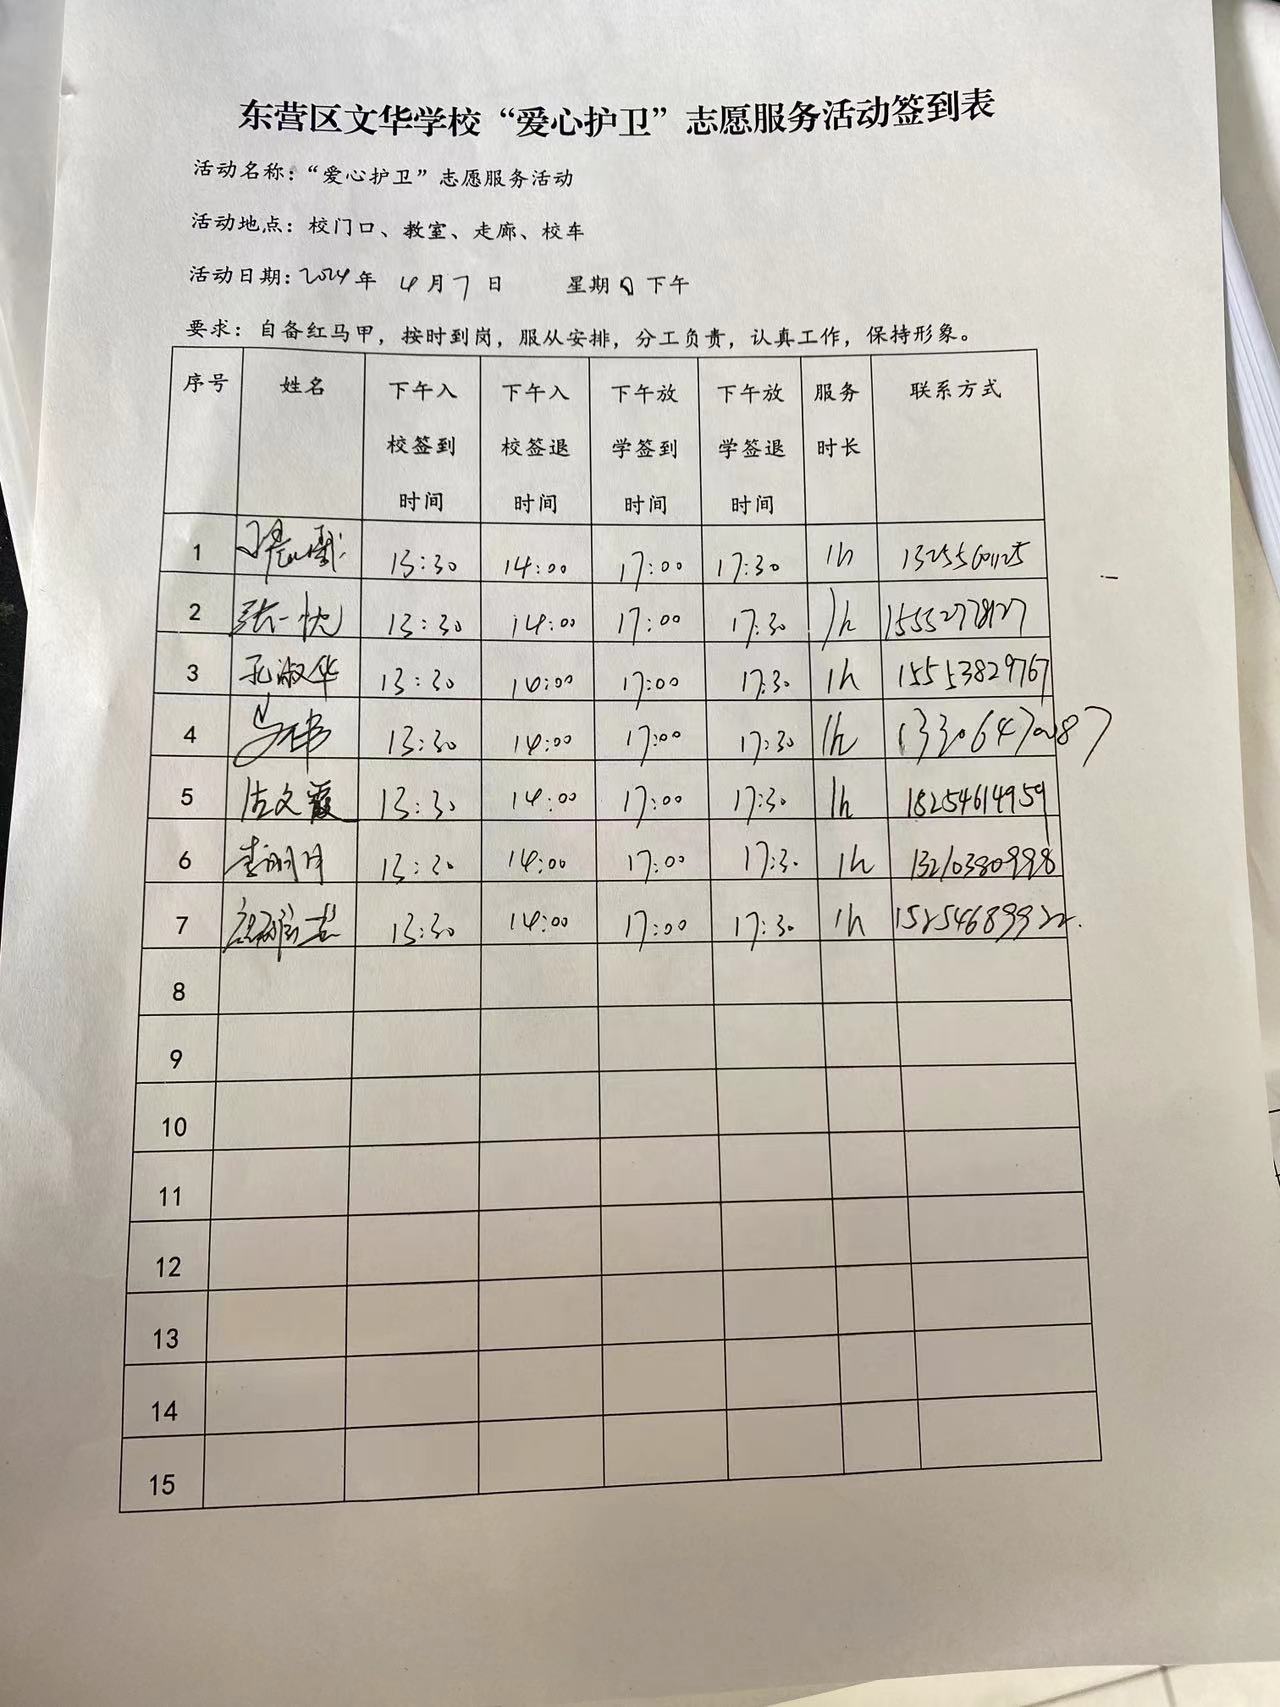 东营区文华学校“爱心护卫”志愿服务活动签到表
活动名称：“爱心护卫”志愿服务活动
活动地点：校门口、教室、走廊、校车
活动日期：2024年 4月7日 星期日下午
要求：自备红马甲，按时到岗，服从安排，分工负责，认真工作，保持形象。
序号 姓名 下午入校签到时间 下午入校签退时间 下午放学签到时间 下午放学签退时间 服务时长 联系方式
1 13:30 14:00 17:00 17:30 1h
2 张一忱 13:30 14:00 17:00 17:30 1h
3 孔淑华 13:30 14:00 17:00 17:30 1h 15553829767
4 13:30 14:00 17:00 17:30 1h
5 文霞 13:30 14:00 17:00 17:30 1h 18254614959
6 李明月 13:30 14:00 17:00 17:30 1h 13210380998
7 13:30 14:00 17:00 17:30 1h 15254689922.
8
9
10
11
12
13
14
15